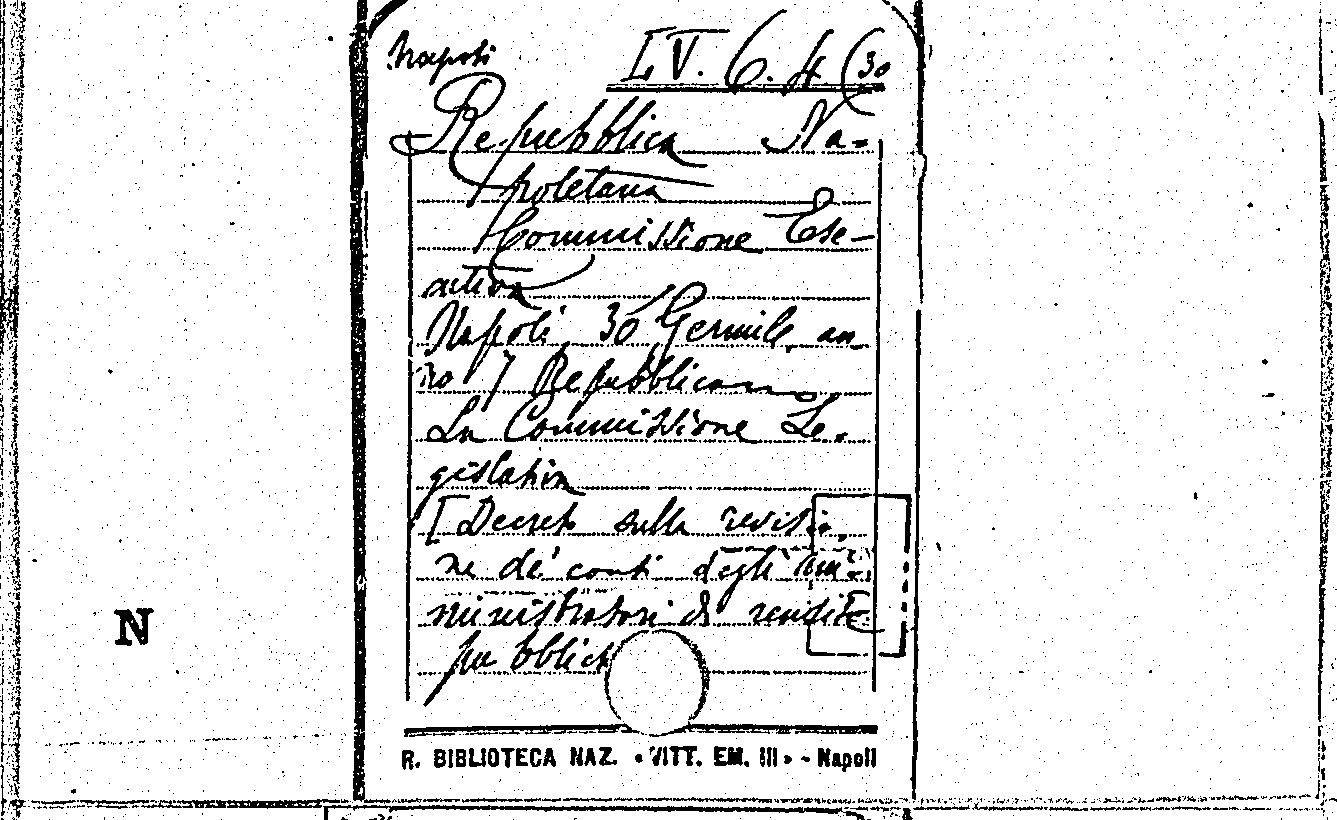 Napoli
LV. 6. 4 (30
Repubblica Na-
poletana
Commissione Ese-
cutiva
Napoli, 30 Germile, an-
no 7 Repubblicano
La Commissione Le-
gislativa
[Decreto sulla revisio-
ne de' conti degli am-
ministratori di rendite
pubblich
N
R. BIBLIOTECA NAZ. «VITT. EM. III» - Napoli